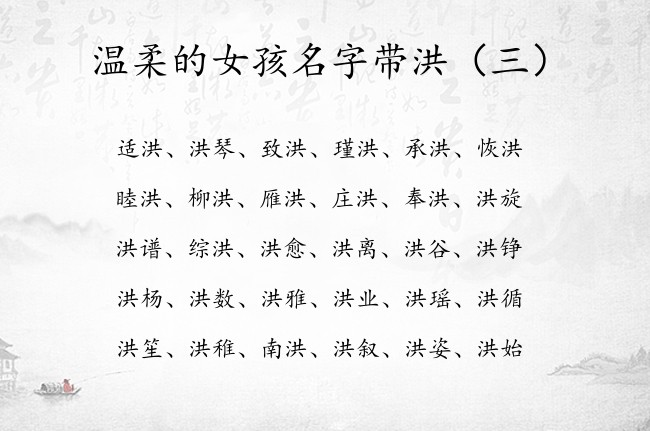 温柔的女孩名字带洪（三）
适洪、洪琴、致洪、瑾洪、承洪、恢洪
睦洪、柳洪、雁洪、庄洪、奉洪、洪旋
洪谱、综洪、洪愈、洪离、洪谷、洪铮
洪杨、洪数、洪雅、洪业、洪瑶、洪循
洪笙、洪稚、南洪、洪叙、洪姿、洪始